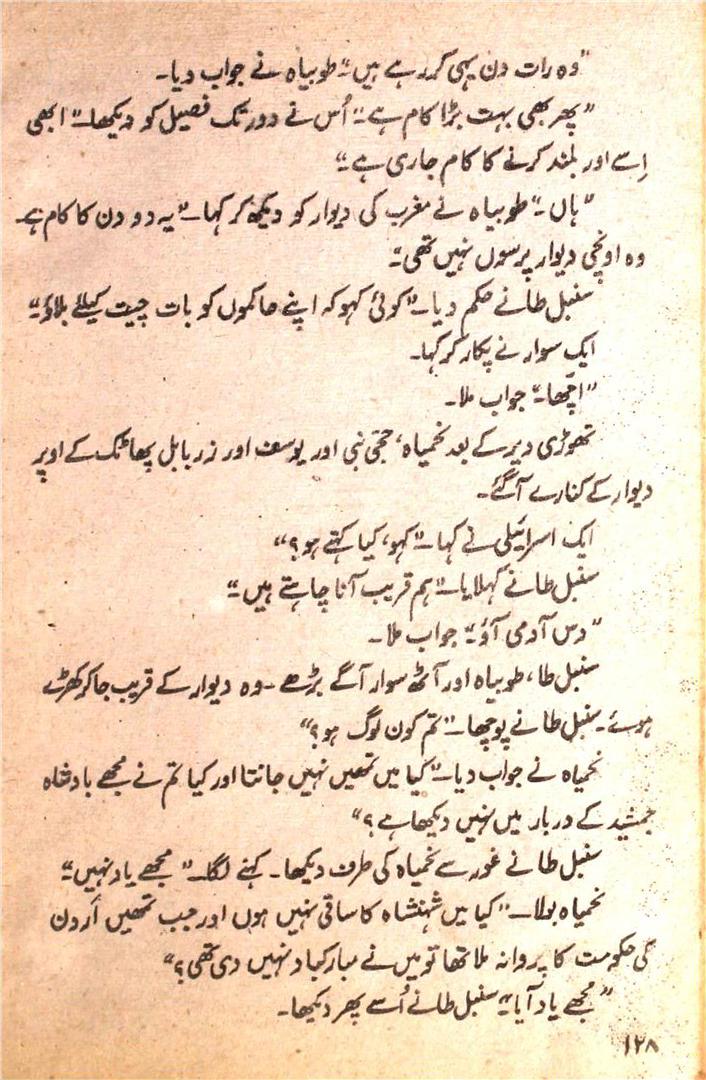 "وہ رات دن یہی کر رہے ہیں۔" طوبیاہ نے جواب دیا۔
"پھر بھی بہت بڑا کام ہے۔" اُس نے دور تک فصیل کو دیکھا۔ "ابھی
اِسے اور بلند کرنے کا کام جاری ہے۔"
"ہاں۔" طوبیاہ نے مغرب کی دیوار کو دیکھ کر کہا۔ "یہ دو دن کا کام ہے۔
وہ اونچی دیوار پرسوں نہیں تھی۔"
سنبل طا نے حکم دیا۔ "کوئی کہو کہ اپنے حاکموں کو بات چیت کیلئے بلاؤ۔"
ایک سوار نے پکار کر کہا۔
"اچھا۔" جواب ملا۔
تھوڑی دیر کے بعد نحمیاہ، حجی نبی اور یوسف اور زر بابل پھاٹک کے اوپر
دیوار کے کنارے آ گئے۔
ایک اسرائیلی نے کہا۔ "کہو، کیا کہتے ہو؟"
سنبل طا نے کہلایا۔ "ہم قریب آنا چاہتے ہیں۔"
"دس آدمی آؤ۔" جواب ملا۔
سنبل طا، طوبیاہ اور آٹھ سوار آگے بڑھے۔ وہ دیوار کے قریب جا کر کھڑے
ہوئے۔ سنبل طا نے پوچھا۔ "تم کون لوگ ہو؟"
نحمیاہ نے جواب دیا۔ "کیا میں تمھیں نہیں جانتا اور کیا تم نے مجھے بادشاہ
جمشید کے دربار میں نہیں دیکھا ہے؟"
سنبل طا نے غور سے نحمیاہ کی طرف دیکھا۔ کہنے لگا۔ "مجھے یاد نہیں۔"
نحمیاہ بولا۔ "کیا میں شہنشاہ کا ساقی نہیں ہوں اور جب تمھیں اُردن
کی حکومت کا پروانہ ملا تھا تو میں نے مبارکباد نہیں دی تھی؟"
"مجھے یاد آیا۔" سنبل طا نے اُسے پھر دیکھا۔
۱۲۸